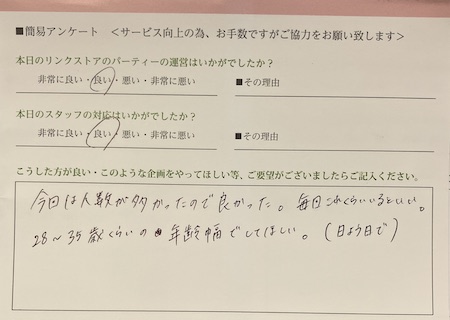 ■簡易アンケート ＜サービス向上の為、お手数ですがご協力をお願い致します＞
本日のリンクストアのパーティーの運営はいかがでしたか？
非常に良い・良い・悪い・非常に悪い ■その理由
本日のスタッフの対応はいかがでしたか？
非常に良い・良い・悪い・非常に悪い ■その理由
こうした方が良い・このような企画をやってほしい等、ご要望がございましたらご記入ください。
今回は人数が多かったので良かった。毎回これくらいいるといい。
28～35歳くらいの年齢幅でしてほしい。(日よう日で)